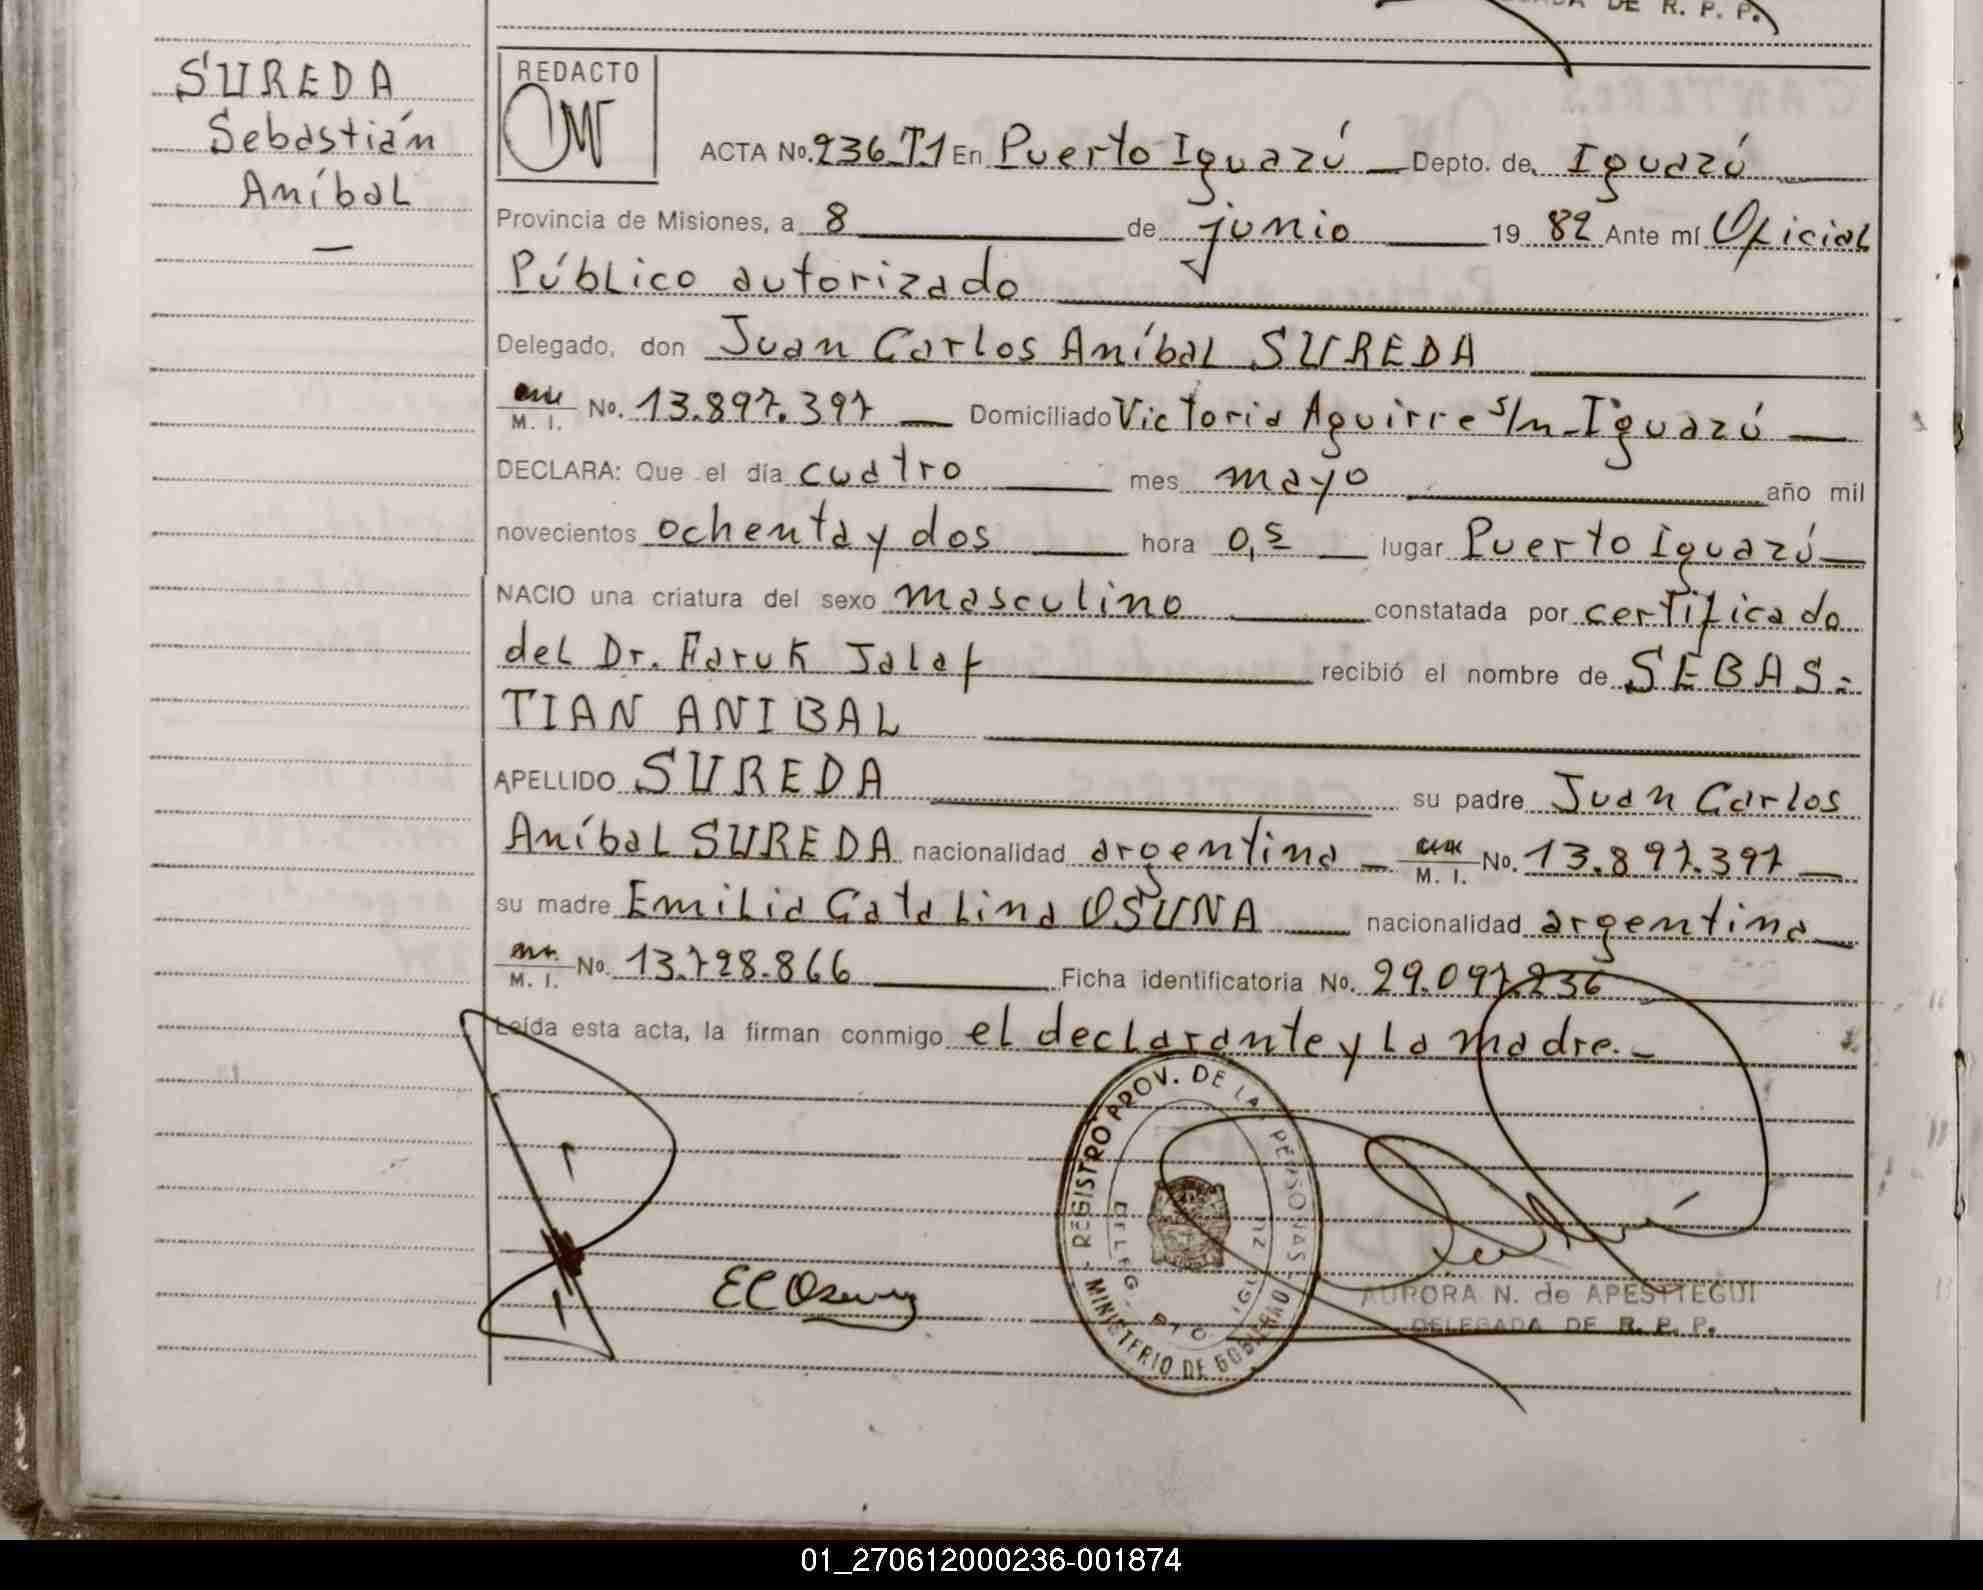 DA DE R. P. P.
SUREDA
Sebastián
Aníbal
REDACTO
ACTA No. 236 T1 En Puerto Iguazú Depto. de Iguazú
Provincia de Misiones, a 8 de junio 19 82 Ante mí Oficial
Público autorizado
Delegado, don Juan Carlos Aníbal SUREDA
M. I. No. 13.897.397 Domiciliado Victoria Aguirre s/n - Iguazú
DECLARA: Que el día cuatro mes mayo año mil
novecientos ochenta y dos hora 0,5 lugar Puerto Iguazú
NACIO una criatura del sexo masculino constatada por certificado
del Dr. Faruk Jalaf recibió el nombre de SEBAS-
TIAN ANIBAL
APELLIDO SUREDA su padre Juan Carlos
Aníbal SUREDA nacionalidad argentina M. I. No. 13.897.397
su madre Emilia Catalina OSUNA nacionalidad argentina
M. I. No. 13.728.866 Ficha identificatoria No. 29.097.236
Leída esta acta, la firman conmigo el declarante y la madre.-
REGISTRO PROV. DE LA PERSONAS
MINISTERIO DE GOBIERNO
DELEG. DTO. IGUAZU
EC Osuna
AURORA N. de APESTTEGUI
DELEGADA DE R. P. P.
01_270612000236-001874